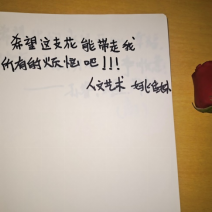 希望这支花能带走我
所有的烦恼吧!!!
人文艺术